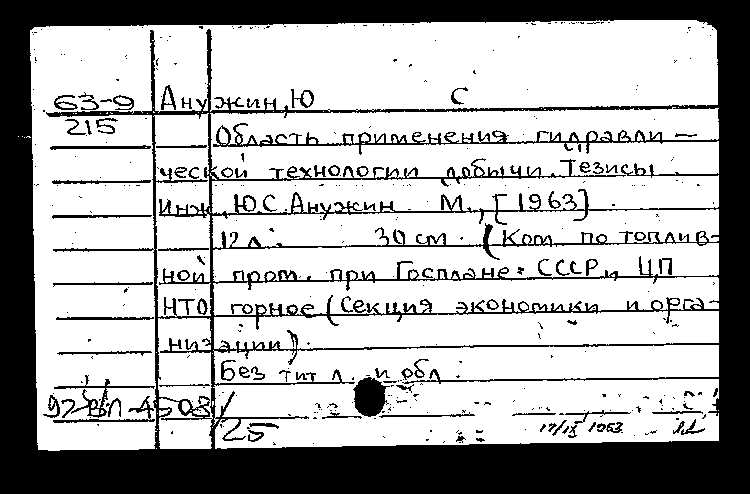 63-9 Анужин, Ю С
215
Область применения гидравли-
ческой технологии добычи. Тезисы.
Инж. Ю.С. Анужин М., [1963].
12 л. 30 см. (Ком. по топлив-
ной пром. при Госплане СССР, ЦП
НТО горное (Секция экономики и орга-
низации).
Без тит л. и обл.
4508/25
17/IX 1963